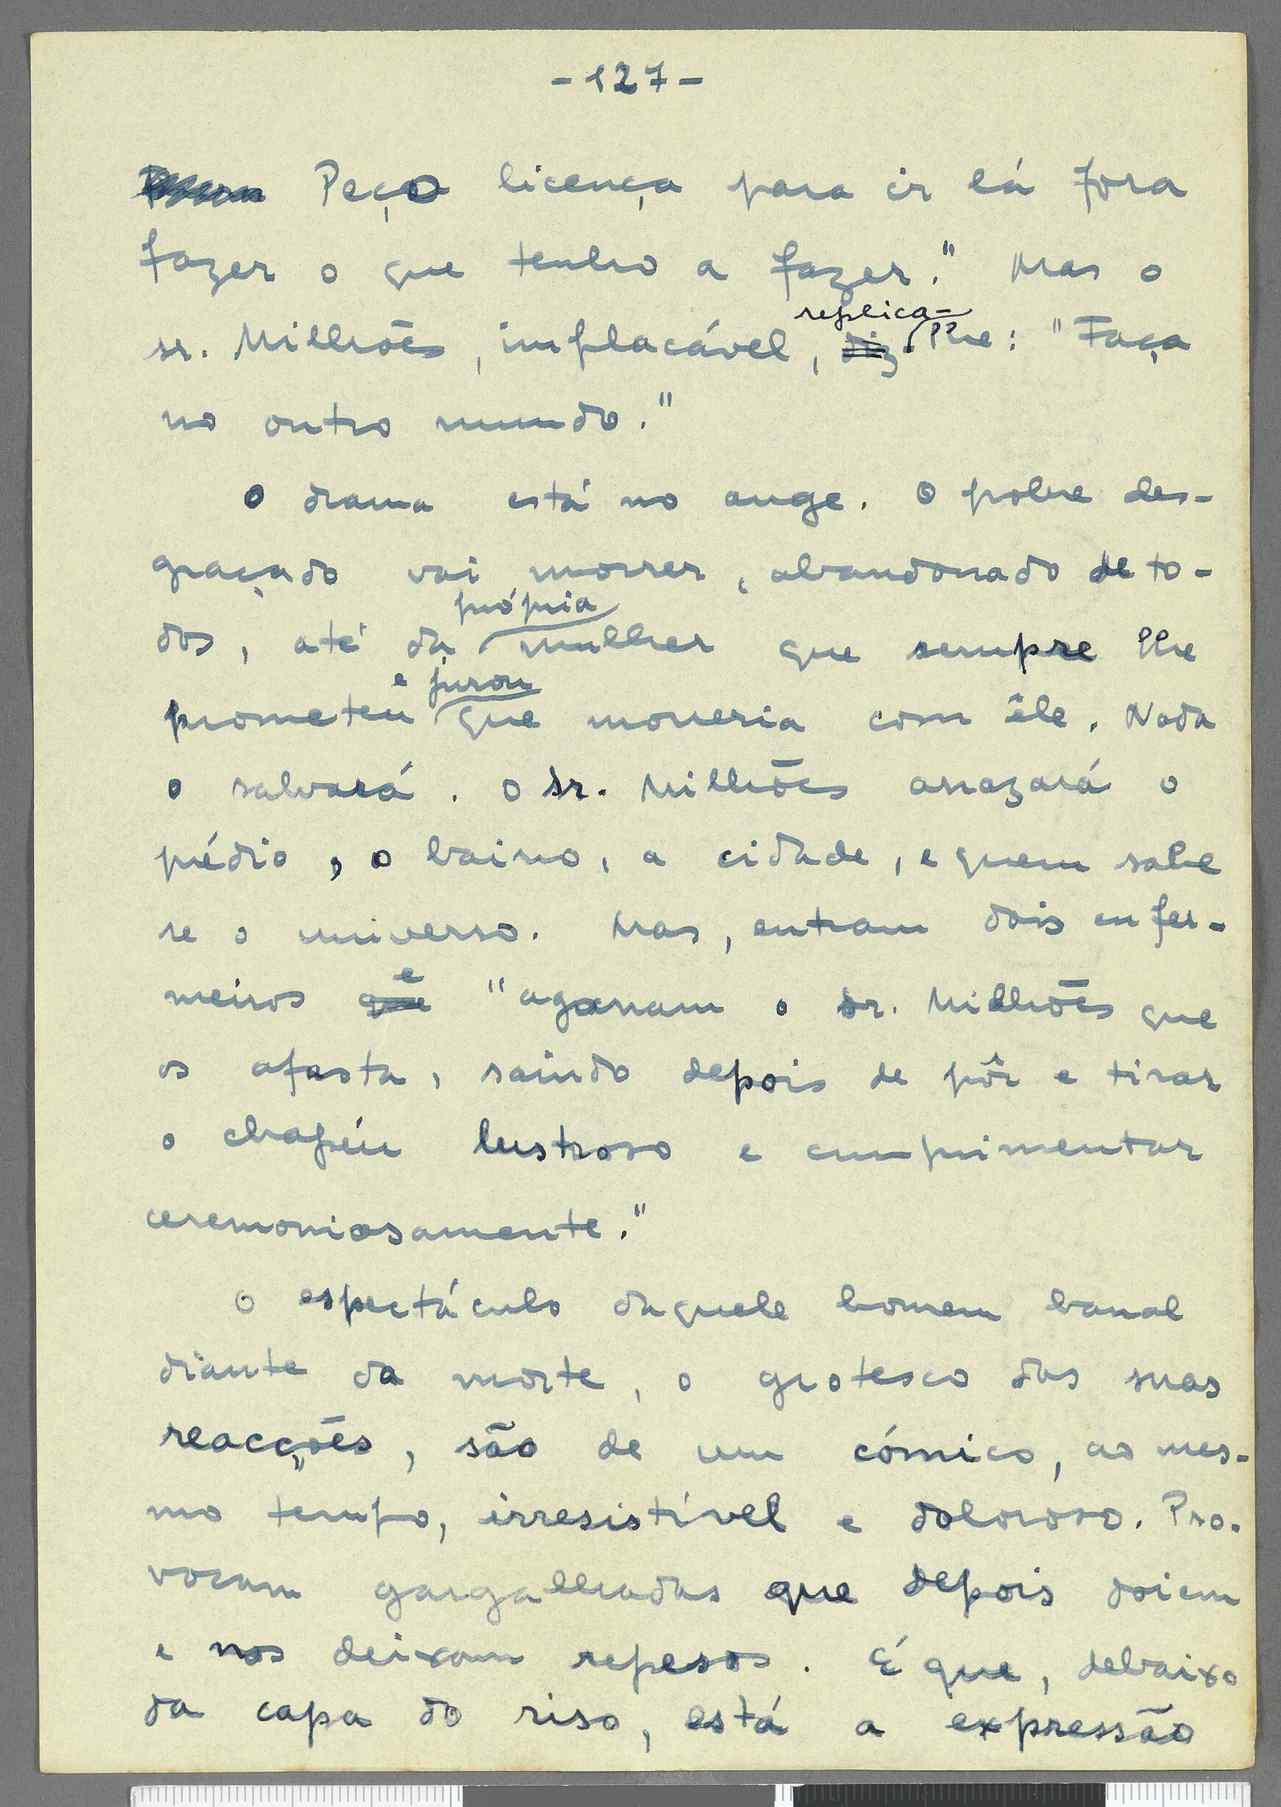 -127-
Peço licença para ir lá fora
fazer o que tenho a fazer." Mas o
sr. Milhões, implacável, replica-lhe: "Faça
no outro mundo."
O drama está no auge. O pobre des-
graçado vai morrer, abandonado de to-
dos, até da própria mulher que sempre lhe
prometeu e jurou que morreria com êle. Nada
o salvará. O sr. Milhões arrazará o
prédio, o bairro, a cidade, e quem sabe
se o universo. Mas, entram dois enfer-
meiros e "agarram o sr. Milhões que
os afasta, saindo depois de pôr e tirar
o chapéu lustroso e cumprimentar
ceremoniosamente."
O espectáculo daquele homem banal
diante da morte, o grotesco das suas
reacções, são de um cómico, ao mes-
mo tempo, irresistível e doloroso. Pro-
vocam gargalhadas que depois doiem
e nos deixam repesos. É que, debaixo
da capa do riso, está a expressão